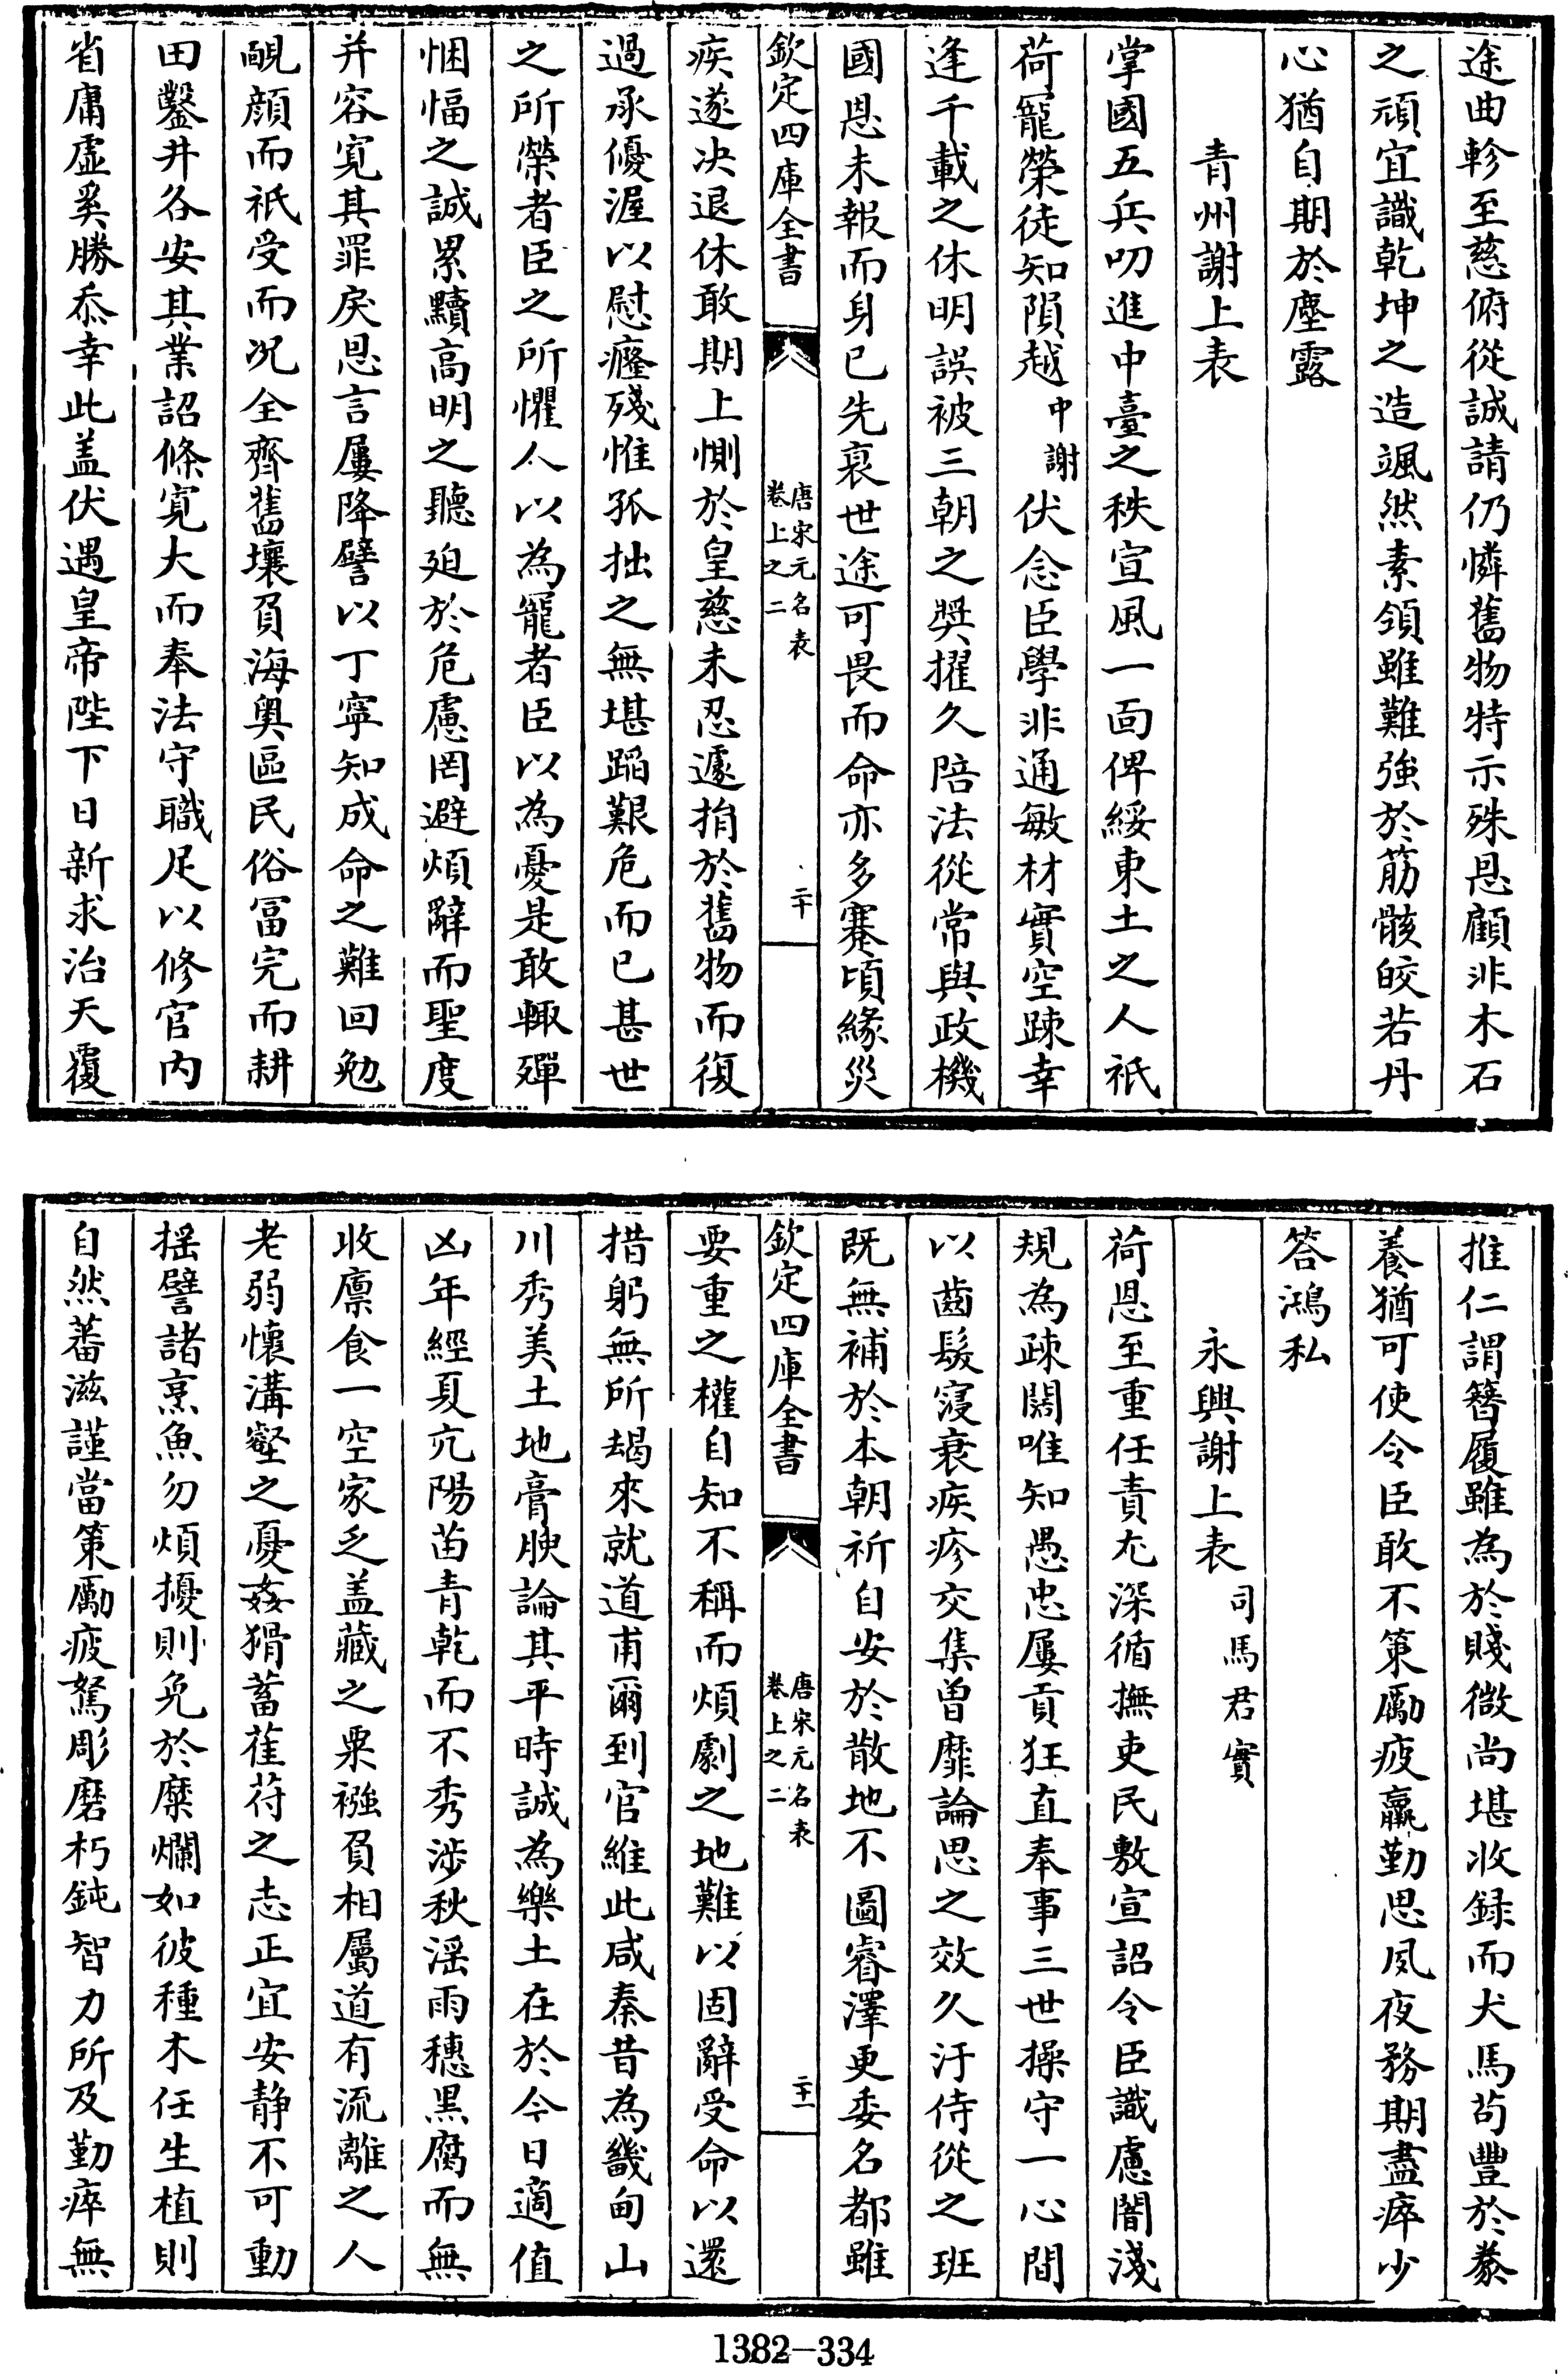 途曲軫至慈俯從誠請仍憐舊物特示殊恩顧非木石
之頑宜識乾坤之造颯然素領雖難強於筋骸皎若丹
心猶自期於塵露
青州謝上表
掌國五兵叨進中臺之秩宣風一面俾綏東土之人祇
荷寵榮徒知隕越中謝伏念臣學非通敏材實空疎幸
逢千載之休明誤被三朝之奬擢久陪法從常與政機
國恩未報而身已先衰世途可畏而命亦多蹇頃緣災
欽定四庫全書
唐宋元名表
卷上之二
二十
疾遂决退休敢期上惻於皇慈未忍遽捐於舊物而復
過承優渥以慰癃殘惟孤拙之無堪蹈艱危而已甚世
之所榮者臣之所懼人以為寵者臣以為憂是敢輙殫
悃愊之誠累黷高明之聽廹於危慮罔避煩辭而聖度
并容寛其罪戾恩言屢降譬以丁寧知成命之難回勉
靦顔而祇受而况全齊舊壤負海奥區民俗冨完而耕
田鑿井各安其業詔條寛大而奉法守職足以修官内
省庸虛奚勝忝幸此盖伏遇皇帝陛下日新求治天覆
推仁謂簪履雖為於賤微尚堪收録而犬馬苟豐於豢
養猶可使令臣敢不策勵疲羸勤思夙夜務期盡瘁少
答鴻私
永興謝上表司馬君實
荷恩至重任責尤深循撫吏民敷宣詔令臣識慮闇淺
規為疎闊唯知愚忠屢貢狂直奉事三世操守一心間
以齒髮寖衰疾疹交集曽靡論思之效久汙侍從之班
既無補於本朝祈自安於散地不圖睿澤更委名都雖
欽定四庫全書
唐宋元名表
卷上之二
二十一
要重之權自知不稱而煩劇之地難以固辭受命以還
措躬無所朅來就道甫爾到官維此咸秦昔為畿甸山
川秀美土地膏腴論其平時誠為樂土在於今日適值
凶年經夏亢陽苗青乾而不秀涉秋滛雨穗黑腐而無
收廪食一空家乏盖藏之粟襁負相屬道有流離之人
老弱懷溝壑之憂姦猾蓄萑苻之志正宜安静不可動
揺譬諸烹魚勿煩擾則免於糜爛如彼種木任生植則
自然蕃滋謹當策勵疲駑彫磨朽鈍智力所及勤瘁無
1382-334